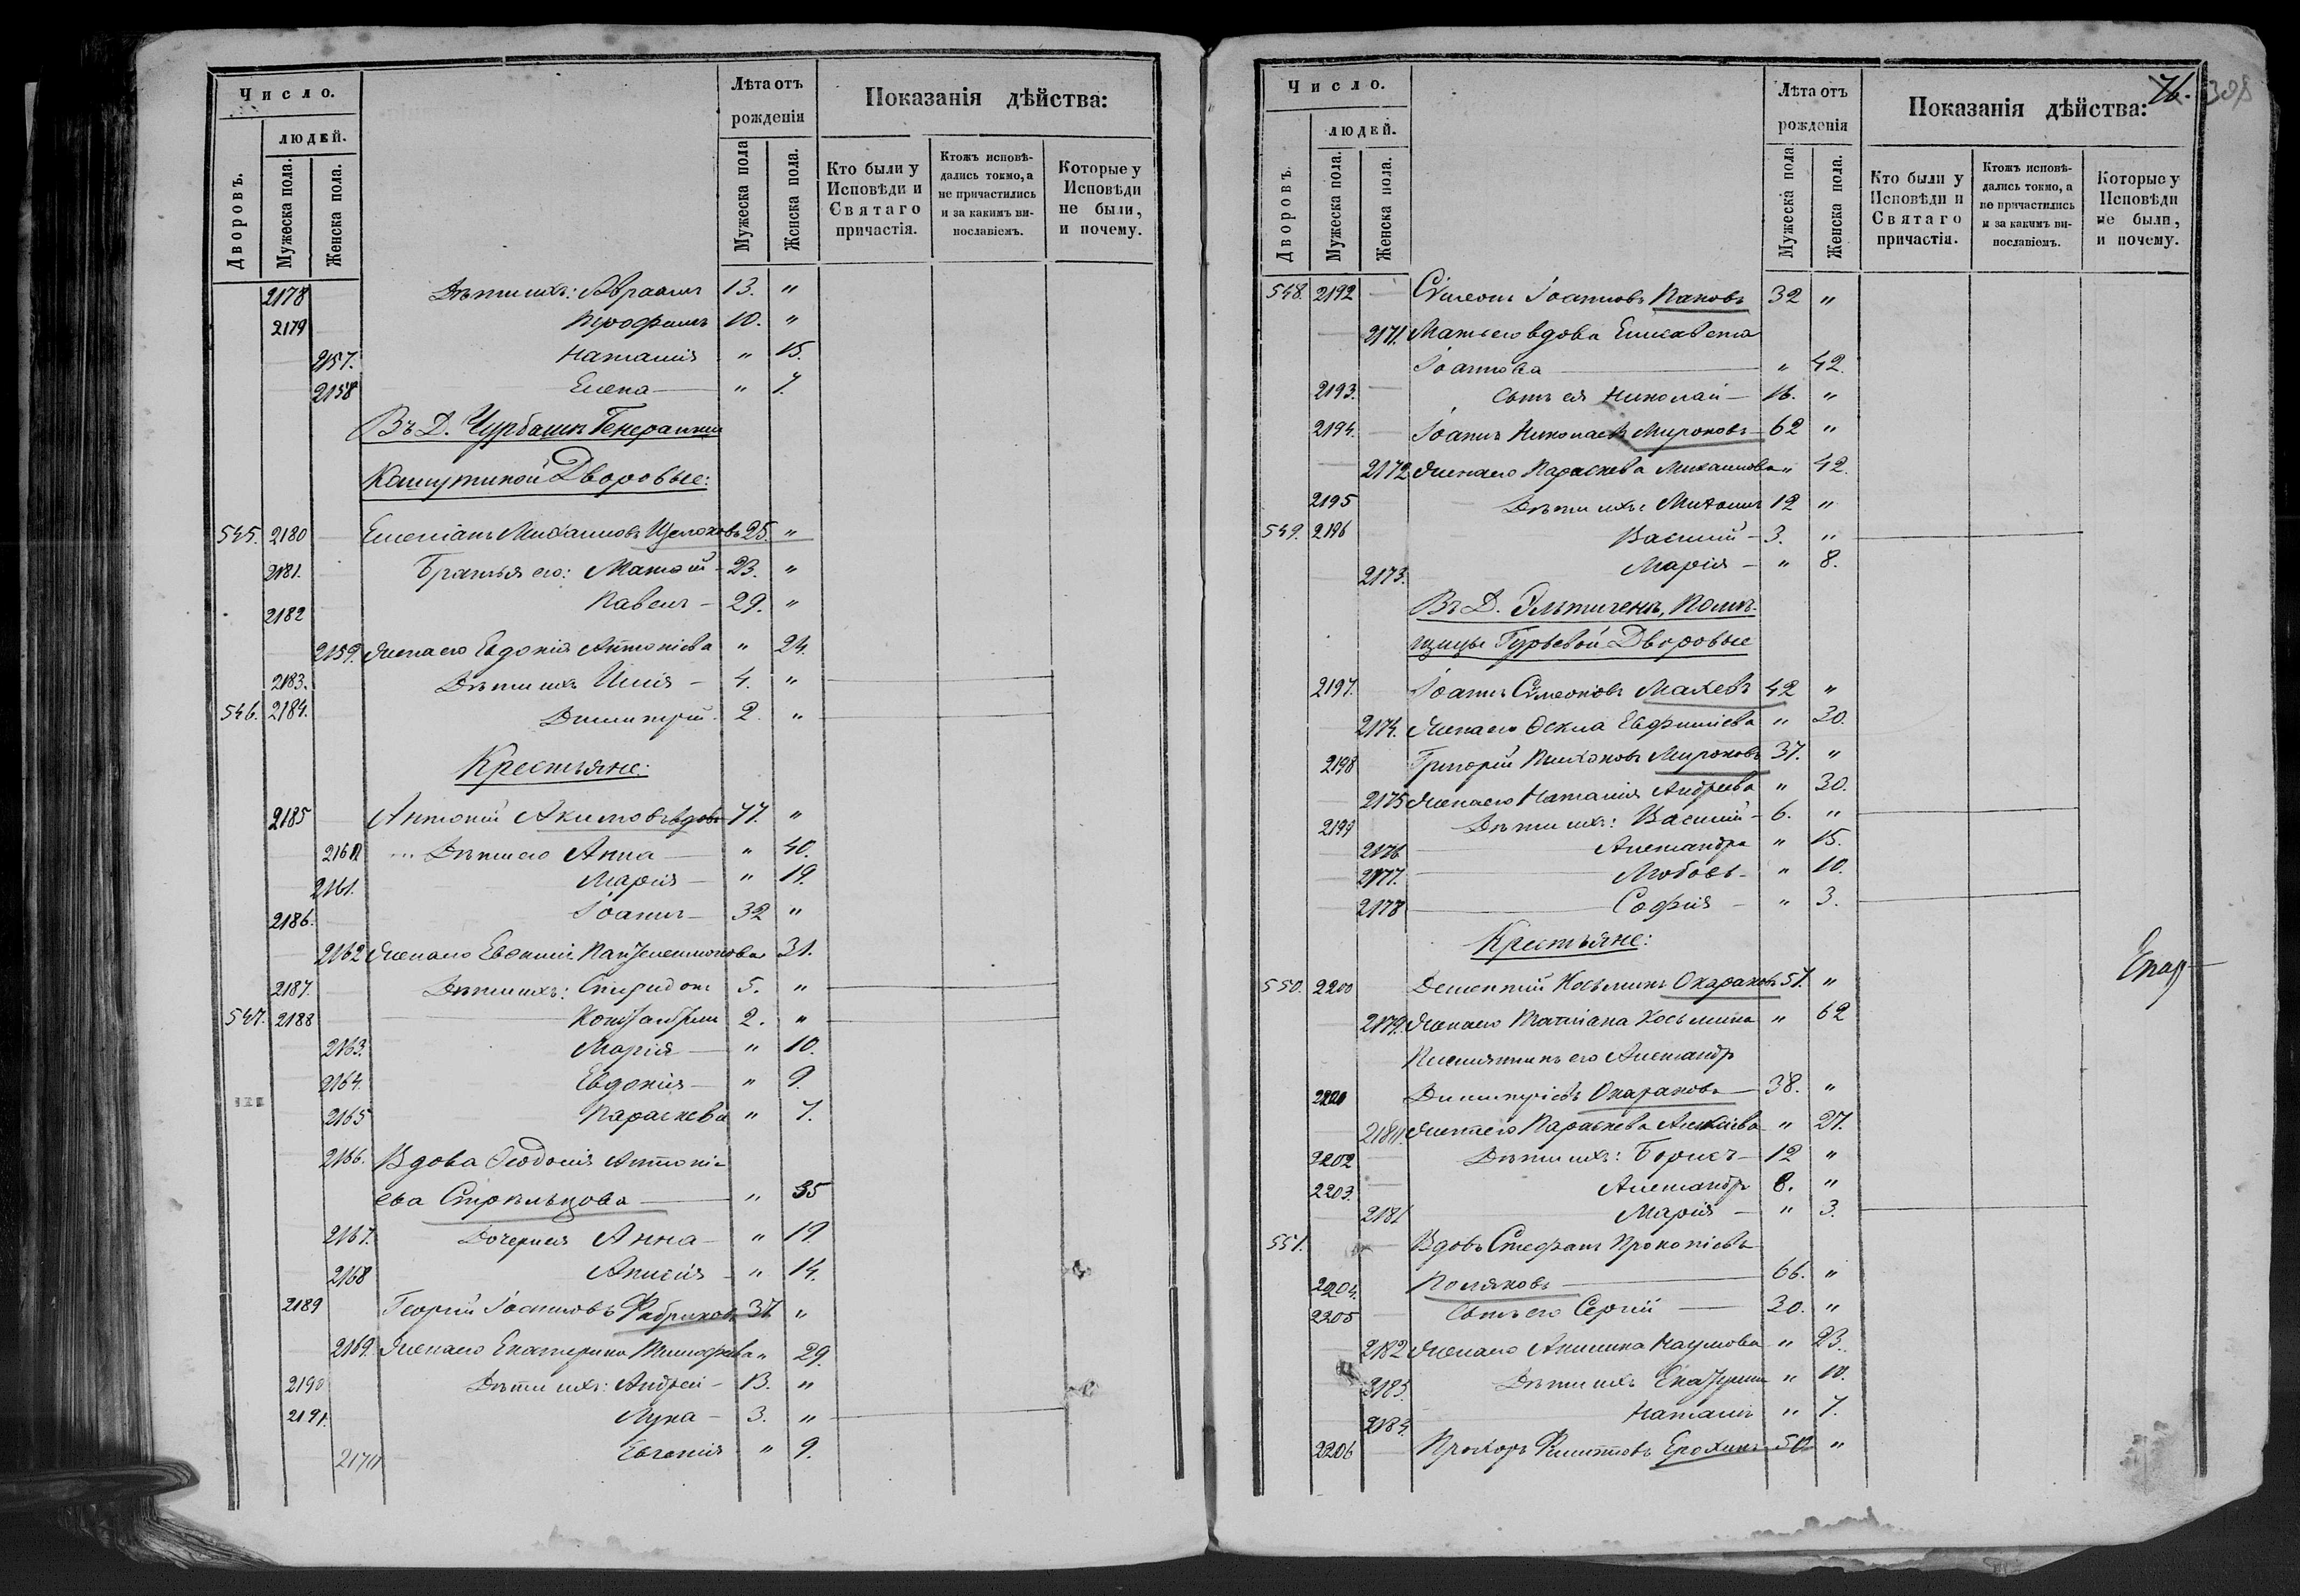 Число.
Лѣта отъ
рожденія
Показанія дѣйства:
людей.
Дворовъ.
Мужеска пола.
Женска пола.
Мужеска пола
Женска пола.
Кто были у
Исповѣди и
Святаго
причастія.
Ктожъ исповѣ-
дались токмо, а
не причастились
и за какимъ ви-
нославіемъ.
Которые у
Исповѣди
не были,
и почему.
2178 Дѣти ихъ: Авраамъ 13. "
2179 Трофимъ 10. "
2157. Наталія " 15.
2158 Елена " 7.
Въ Д. Чурбашъ Генеральши
Дворовые:
545. 2180 Емеліанъ Михаиловъ 25. "
2181. Братья его: 23. "
2182 Павелъ 29. "
2159. Жена его Евдокія Антоніева " 24.
2183. Дѣти ихъ Илія 4. "
546. 2184. Димитрій 2. "
Крестьяне:
2185 Антоній Акимовъ вдовъ 77. "
Дѣти его Анна " 40.
2161. Марія " 19.
2186. Іоаннъ 32 "
2162 Жена его Пантелеимонова 31.
2187. Дѣти ихъ: Спиридонъ 5. "
547. 2188 Константинъ 2. "
2163. Марія " 10.
2164. Евдокія " 9.
2165 Параскева " 7.
2166. Вдова Феодосія Антоні-
ева Стрѣльцова " 35
2167. Дочери ея Анна " 19.
2168 " 14.
2189 Георгій Іоанновъ Фабриковъ 37. "
2169. Жена его Екатерина Тимофеева " 29.
2190 Дѣти ихъ: Андрей 13. "
2191. Лука 3. "
Евгенія " 9.
Число.
Лѣта отъ
рожденія
Показанія дѣйства:
76.
людей.
Дворовъ.
Мужеска пола.
Женска пола.
Мужеска пола
Женска пола.
Кто были у
Исповѣди и
Святаго
причастія.
Ктожъ исповѣ-
дались токмо, а
не причастились
и за какимъ ви-
нославіемъ.
Которые у
Исповѣди
не были,
и почему.
548. 2192 Сѵмеонъ Іоанновъ Пановъ 32 "
2171. Мать его вдова Елисавета
Іоаннова " 42.
2193. Сынъ ея Николай 16. "
2194. Іоаннъ Николаевъ Мироновъ 62 "
2172 Жена его Параскева Михаилова " 42.
2195 Дѣти ихъ: Михаилъ 12 "
549. 2196 Василій 3. "
2173. Марія " 8.
Въ Д. Эльтигенъ, Помѣ-
щицы Гурьевой Дворовые
2197. Іоаннъ Сѵмеоновъ Махевъ 42 "
2174. Жена его Ѳекла Евфиміева " 30.
2198 Григорій Тихоновъ Мироновъ 37. "
2175 Жена его Наталія Андреева " 30.
2199 Дѣти ихъ: Василій 6. "
2176 Александра " 15.
2177. Любовь " 10.
2178 Софія " 3.
Крестьяне:
550. 2200 Дементій Косьминъ Окараковъ 57. "
2179. Жена его Татіана Косьмина " 62
Племянникъ его Александръ
Димитріевъ Окараковъ 38. "
Жена его Параскева Алексіева " 27.
2202 Дѣти ихъ: Борисъ 12 "
2203. Александръ 8. "
2181 Марія " 3.
551. Вдовъ Стефанъ Прокопіевъ
2204. Поляковъ 66. "
2205 Сынъ его Сергій 30. "
2182 Жена его Акилина Наумова " 23.
2183. Дѣти ихъ Екатерина " 10.
2184. Наталія " 7.
2206 Прохоръ Филипповъ Ерохинъ 50 "